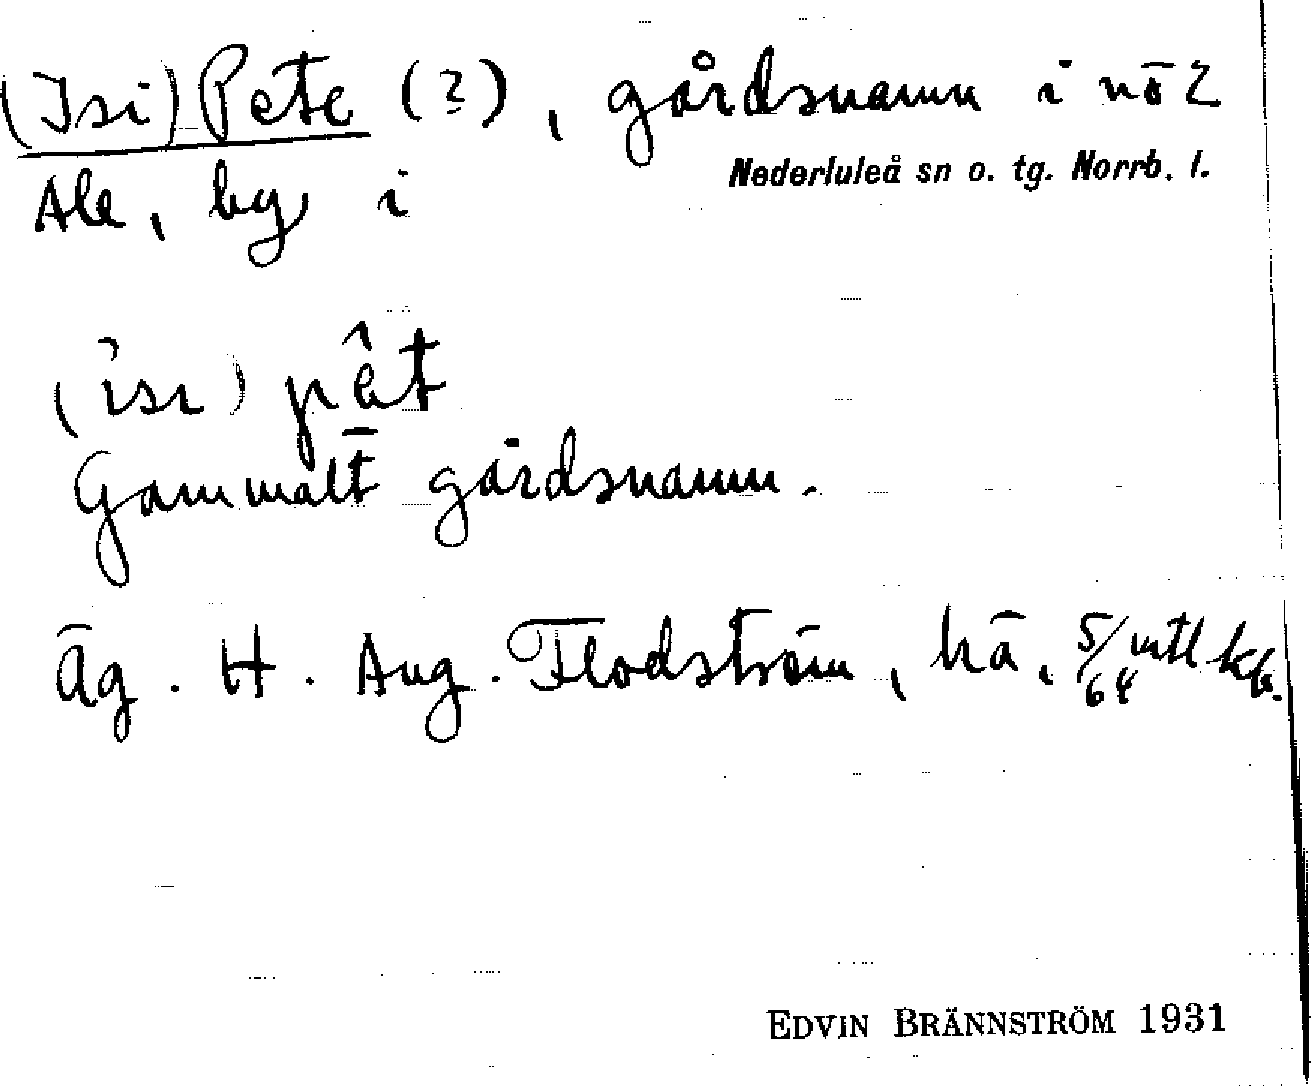 (Isi) Pete (?), gårdsnamn i nö 2
Nederluleå sn o. tg. Norrb. l.
Ale, by i
(isi) pêt
Gammalt gårdsnamn.
Äg. H. Aug. Flodström, hä, 5/64 mtl kr.
EDVIN BRÄNNSTRÖM 1931